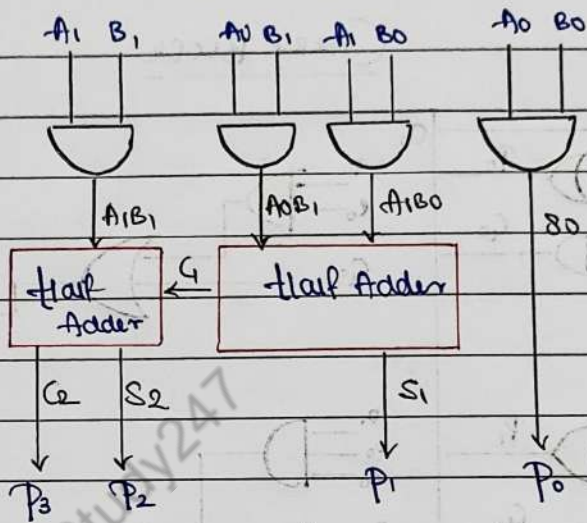 A1 B1 A0 B1 A1 B0 A0 B0
A1B1 A0B1 A1B0 S0
Half Adder C1 Half Adder
C2 S2 S1
P3 P2 P1 P0
study247